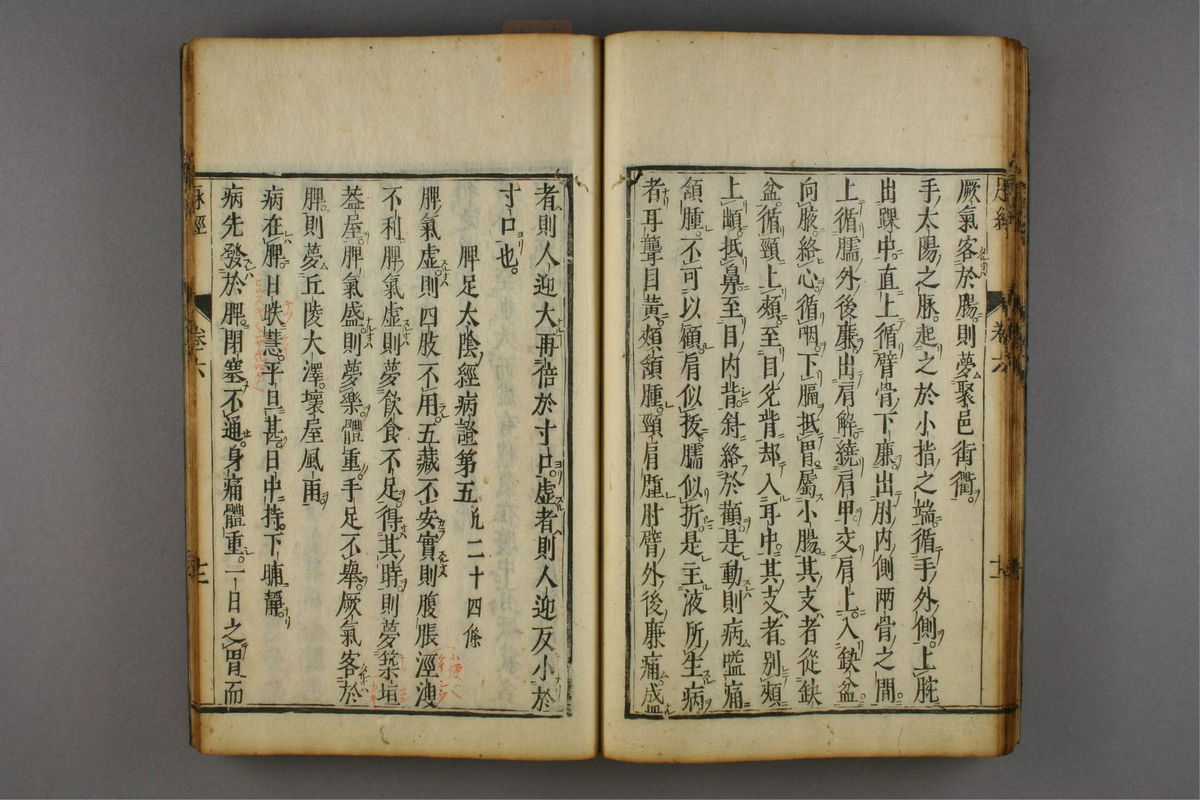 厥氣客於腸則夢聚邑街衢
手太陽之脉起之於小指之端循手外側上腕
出踝中直上循臂骨下廉出肘内側兩骨之間
上循臑外後廉出肩解繞肩甲交肩上入缺盆
向腋絡心循咽下膈抵胃屬小腸其支者從缺
盆循頸上頰至目兌眥却入耳中其支者别頰
上䪼抵鼻至目内眥斜絡於顴是動則病嗌痛
頷腫不可以顧肩似拔臑似折是主液所生病
者耳聾目黃頰頷腫頸肩臑肘臂外後廉痛盛
者則人迎大再倍於寸口虛者則人迎反小於
寸口也
脾足太陰經病證第五 凡二十四條
脾氣虛則四肢不用五藏不安實則腹脹涇溲
不利脾氣虛則夢飲食不足得其時則夢築垣
蓋屋脾氣盛則夢樂體重手足不舉厥氣客於
脾則夢丘陵大澤壞屋風雨
病在脾日昳慧平旦甚日中持下晡靜
病先發於脾閉塞不通身痛體重一日之胃而
脉經 卷六